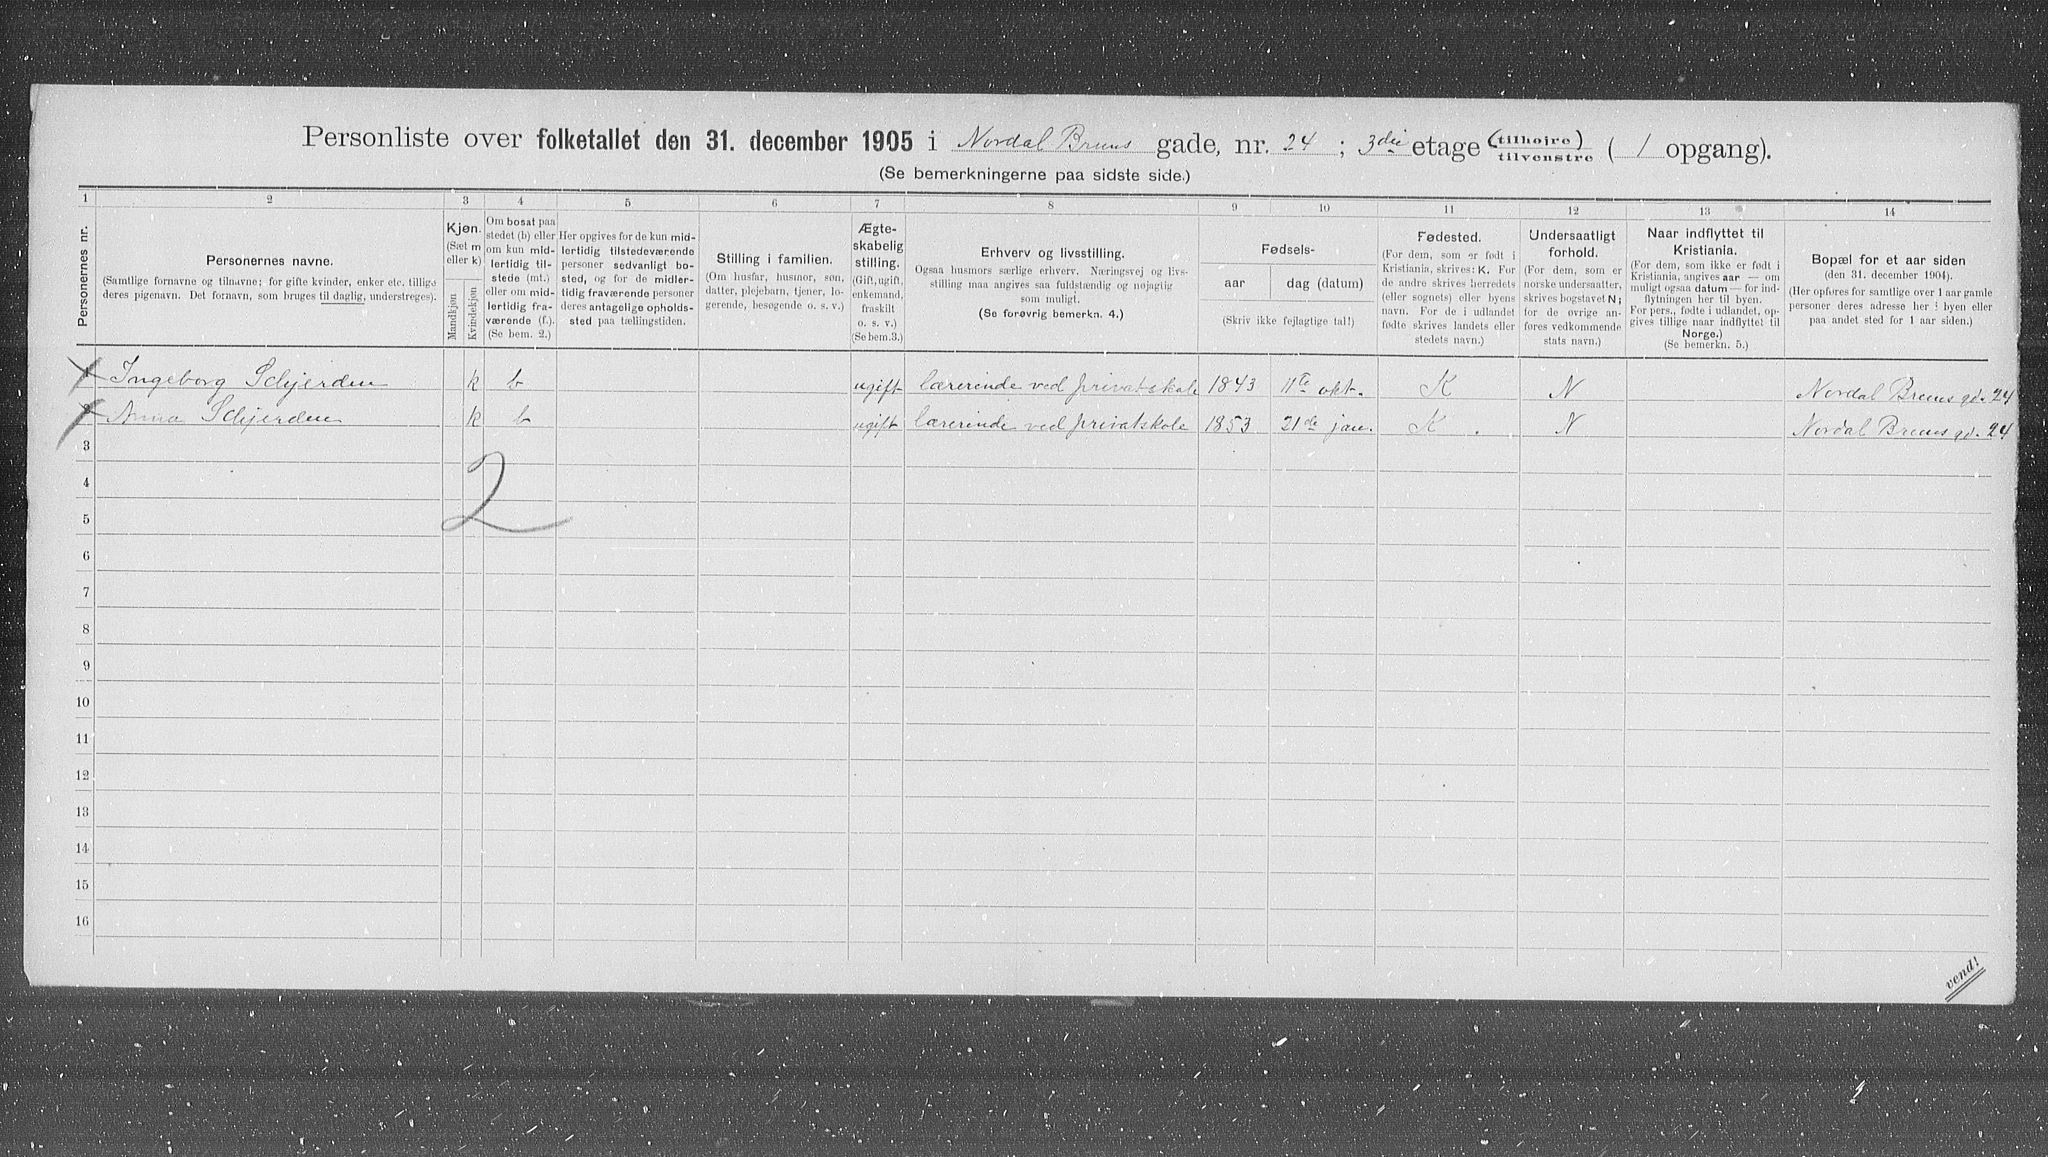 Personliste over folketallet den 31. december 1905 i Nordal Bruns gade, nr. 24 ; 3die etage (tilhøire) tilvenstre ( 1 opgang).
(Se bemerkningerne paa sidste side.)
1 2 3 4 5 6 7 8 9 10 11 12 13 14
Personernes nr.
Personernes navne.
(Samtlige fornavne og tilnavne; for gifte kvinder, enker etc. tillige
deres pigenavn. Det fornavn, som bruges til daglig, understreges).
Kjøn.
(Sæt m
eller k)
Mandkjøn
Kvindekjøn
Om bosat paa
stedet (b) eller
om kun mid-
lertidig til-
stede (mt.)
eller om mid-
lertidig fra-
værende (f.).
(Se bem. 2.)
Her opgives for de kun mid-
lertidig tilstedeværende
personer sedvanligt bo-
sted, og for de midler-
tidig fraværende personer
deres antagelige opholds-
sted paa tællingstiden.
Stilling i familien.
(Om husfar, husmor, søn,
datter, plejebarn, tjener, lo-
gerende, besøgende o. s. v.)
Ægte-
skabelig
stilling.
(Gift, ugift,
enkemand,
fraskilt
o. s. v.)
(Se bem. 3.)
Erhverv og livsstilling.
Ogsaa husmors særlige erhverv. Næringsvej og livs-
stilling maa angives saa fuldstændig og nøjagtig
som muligt.
(Se forøvrig bemerkn. 4.)
Fødsels-
aar
dag (datum)
(Skriv ikke fejlagtige tal!)
Fødested.
(For dem, som er født i
Kristiania, skrives: K. For
de andre skrives herredets
(eller sognets) eller byens
navn. For de i udlandet
fødte skrives landets eller
stedets navn.)
Undersaatligt
forhold.
(For dem, som er
norske undersaatter,
skrives bogstavet N;
for de øvrige an-
føres vedkommende
stats navn.)
Naar indflyttet til
Kristiania.
(For dem, som ikke er født i
Kristiania, angives aar — om
muligt ogsaa datum — for ind-
flytningen her til byen.
For pers., fødte i udlandet, op-
gives tillige naar indflyttet til
Norge.)
(Se bemerkn. 5.)
Bopæl for et aar siden
(den 31. december 1904).
(Her opføres for samtlige over 1 aar gamle
personer deres adresse her i byen eller
paa andet sted for 1 aar siden.)
1 Ingeborg Schjerden k b ugift lærerinde ved privatskole 1843 11te okt. K N Nordal Bruns gd. 24
2 Anna Schjerden k b ugift lærerinde ved privatskole 1853 21de jan. K. N Nordal Bruns gd. 24
3
4
2
5
6
7
8
9
10
11
12
13
14
15
16
vend!